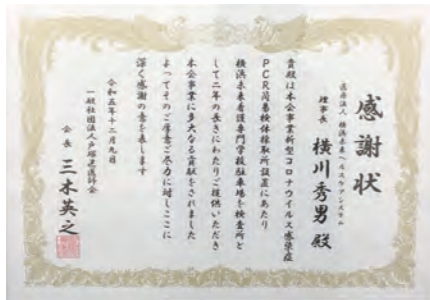 感謝状
医療法人 横浜未来ヘルスケアシステム
理事長 横川秀男 殿
貴殿は本会事業新型コロナウイルス感染症
PCR簡易検体採取所設置にあたり
横浜未来看護専門学校駐車場を検査所と
して二年の長きにわたりご提供いただき
本会事業に多大なる貢献をされました
よってそのご厚意ご尽力に対しここに
深く感謝の意を表します
令和五年十二月九日
一般社団法人戸塚区医師会
会長 三木英之